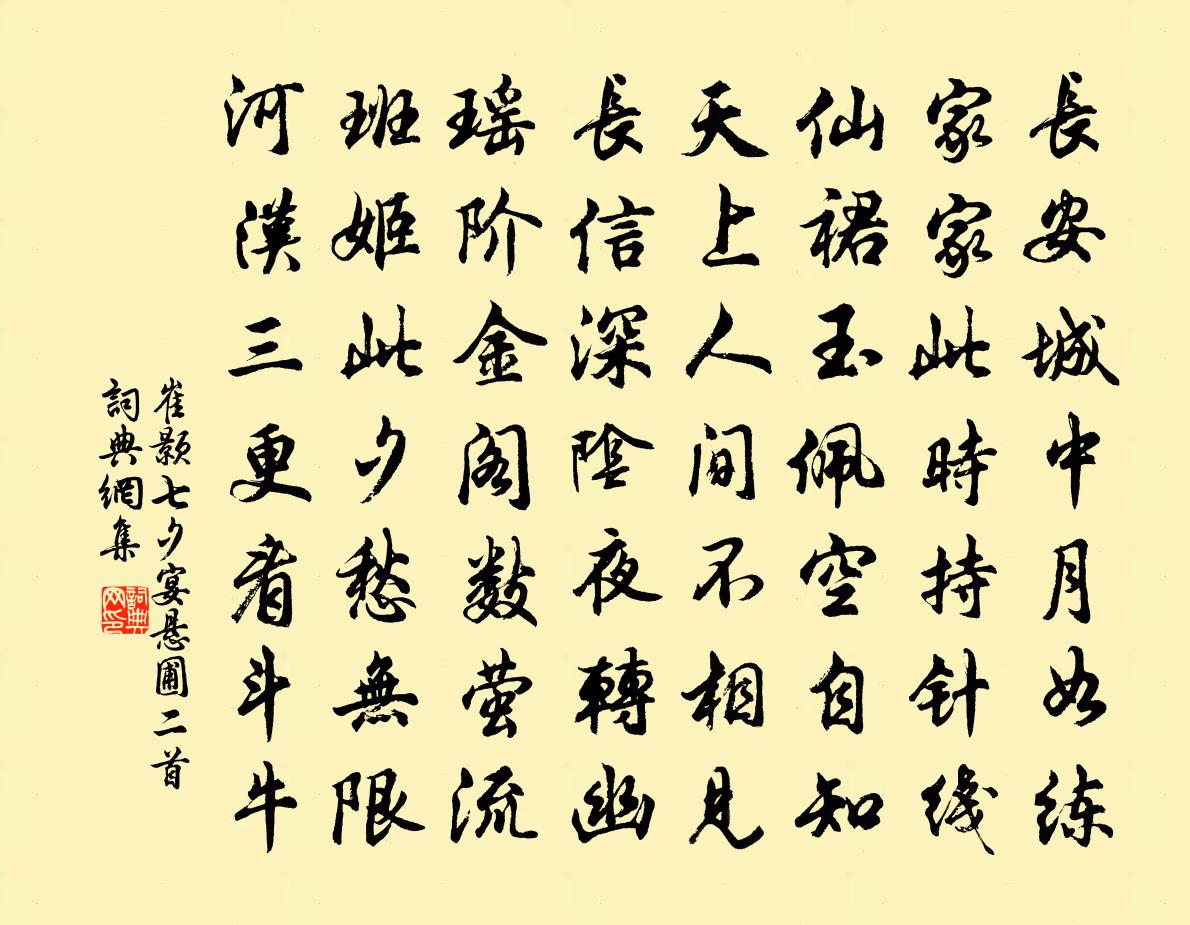 長安城中月如练
家家此時持针线
仙裙玉佩空自知
天上人间不相見
長信深陰夜轉幽
瑶阶金阁数萤流
班姬此夕愁無限
河漢三更看斗牛
崔颢七夕宴悬圃二首
詞典網集
詞典网印